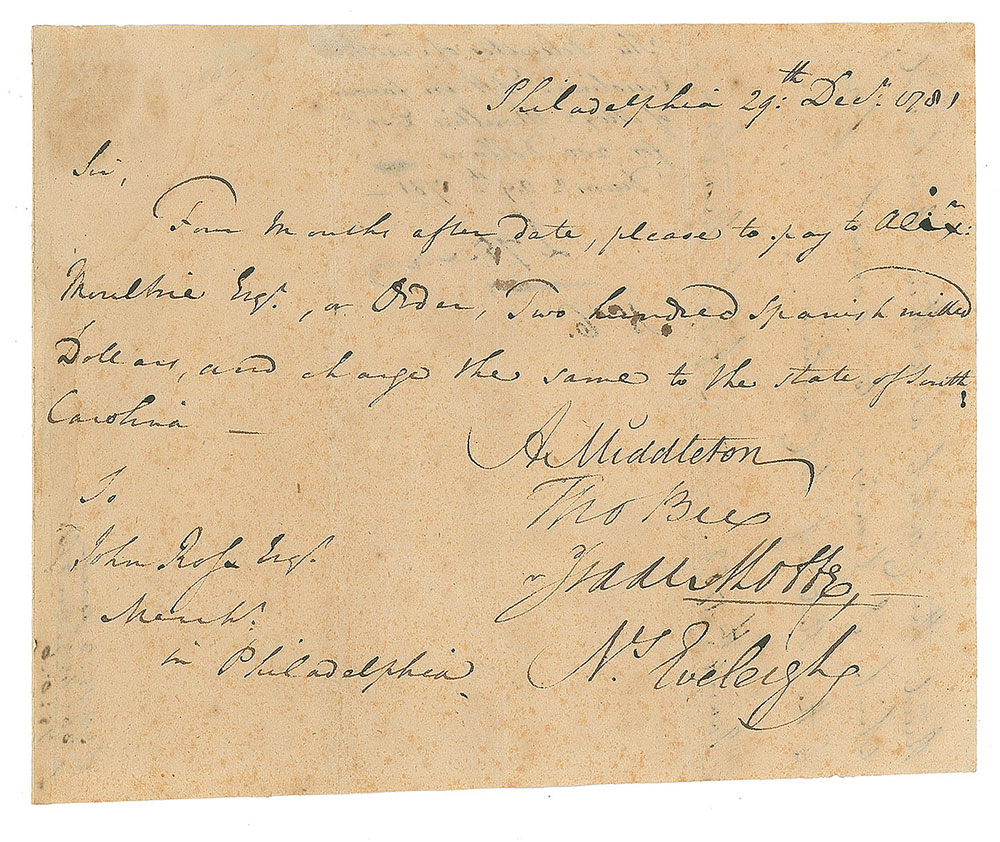 Philadelphia 29:th Decr. 1781
Sir,
Four Months after date, please to pay to Alexr:
Moultrie Esqr., or Order, Two hundred Spanish milled
Dollars, and charge the same to the state of South
Carolina —
A Middleton
Tho Bee
Isaac Motte,
Ns. Eveleigh
To
John Ross Esqr.
Mercht.
in Philadelphia